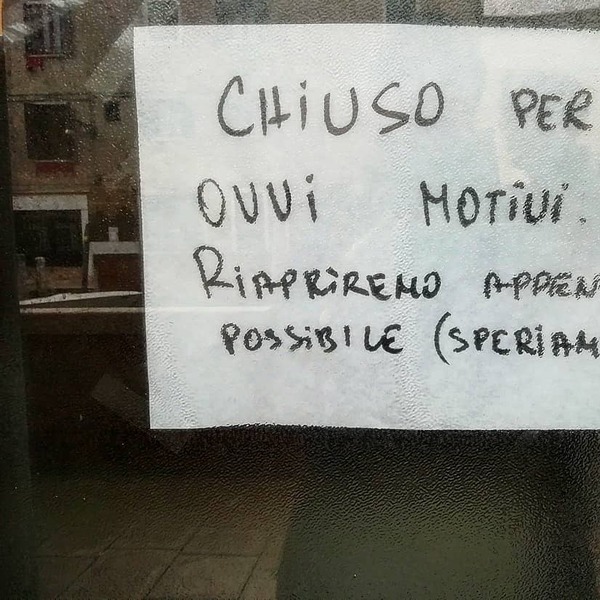 CHIUSO PER
OVVI MOTIVI.
RIAPRIREMO APPEN
POSSIBILE (SPERIAM